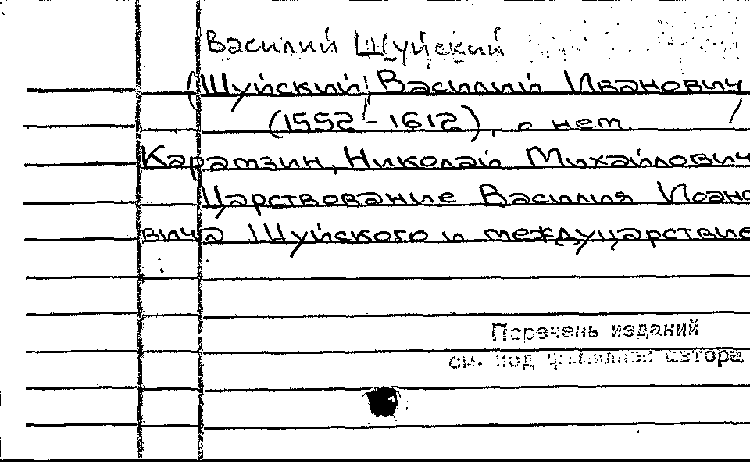 Василий Шуйский
(Шуйский, Василий Иванович
(1552-1612), о нем
Карамзин, Николай Михайлович
Царствование Василия Иоанно
вича Шуйского и междуцарствие
Перечень изданий
см. под фамилией автора